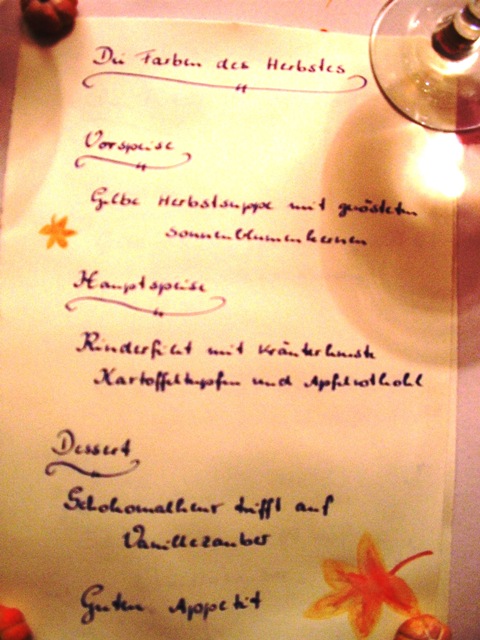 Die Farben des Herbstes
Vorspeise
Gelbe Herbstsuppe mit gerösteten
Sonnenblumenkernen
Hauptspeise
Rinderfilet mit Kräuterkruste
Kartoffeltupfen und Apfelrotkohl
Dessert
Schokomalheur trifft auf
Vanillezauber
Guten Appetit